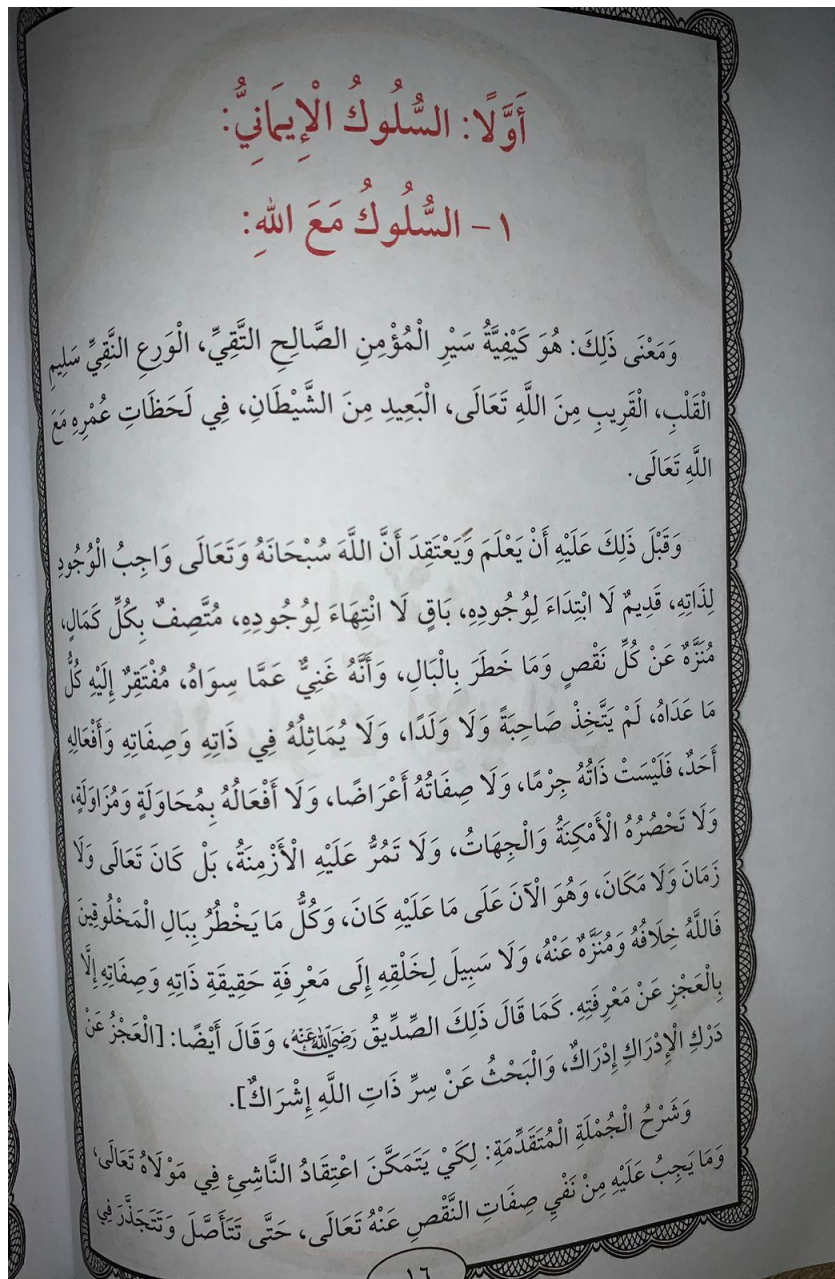 أَوَّلًا: السُّلُوكُ الْإِيمَانِيُّ:
١- السُّلُوكُ مَعَ اللهِ:
وَمَعْنَى ذَلِكَ: هُوَ كَيْفِيَّةُ سَيْرِ الْمُؤْمِنِ الصَّالِحِ التَّقِيِّ، الْوَرِعِ النَّقِيِّ سَلِيمِ
الْقَلْبِ، الْقَرِيبِ مِنَ اللَّهِ تَعَالَى، الْبَعِيدِ مِنَ الشَّيْطَانِ، فِي لَحَظَاتِ عُمْرِهِ مَعَ
اللَّهِ تَعَالَى.
وَقَبْلَ ذَلِكَ عَلَيْهِ أَنْ يَعْلَمَ وَيَعْتَقِدَ أَنَّ اللَّهَ سُبْحَانَهُ وَتَعَالَى وَاجِبُ الْوُجُودِ
لِذَاتِهِ، قَدِيمٌ لَا ابْتِدَاءَ لِوُجُودِهِ، بَاقٍ لَا انْتِهَاءَ لِوُجُودِهِ، مُتَّصِفٌ بِكُلِّ كَمَالٍ،
مُنَزَّهٌ عَنْ كُلِّ نَقْصٍ وَمَا خَطَرَ بِالْبَالِ، وَأَنَّهُ غَنِيٌّ عَمَّا سِوَاهُ، مُفْتَقِرٌ إِلَيْهِ كُلُّ
مَا عَدَاهُ، لَمْ يَتَّخِذْ صَاحِبَةً وَلَا وَلَدًا، وَلَا يُمَاثِلُهُ فِي ذَاتِهِ وَصِفَاتِهِ وَأَفْعَالِهِ
أَحَدٌ، فَلَيْسَتْ ذَاتُهُ جِرْمًا، وَلَا صِفَاتُهُ أَعْرَاضًا، وَلَا أَفْعَالُهُ بِمُحَاوَلَةٍ وَمُزَاوَلَةٍ،
وَلَا تَحْصُرُهُ الْأَمْكِنَةُ وَالْجِهَاتُ، وَلَا تَمُرُّ عَلَيْهِ الْأَزْمِنَةُ، بَلْ كَانَ تَعَالَى وَلَا
زَمَانَ وَلَا مَكَانَ، وَهُوَ الْآنَ عَلَى مَا عَلَيْهِ كَانَ، وَكُلُّ مَا يَخْطُرُ بِبَالِ الْمَخْلُوقِينَ
فَاللَّهُ خِلَافُهُ وَمُنَزَّهٌ عَنْهُ، وَلَا سَبِيلَ لِخَلْقِهِ إِلَى مَعْرِفَةِ حَقِيقَةِ ذَاتِهِ وَصِفَاتِهِ إِلَّا
بِالْعَجْزِ عَنْ مَعْرِفَتِهِ. كَمَا قَالَ ذَلِكَ الصِّدِّيقُ رَضِيَ اللَّهُ عَنْهُ، وَقَالَ أَيْضًا: [الْعَجْزُ عَنْ
دَرْكِ الْإِدْرَاكِ إِدْرَاكٌ، وَالْبَحْثُ عَنْ سِرِّ ذَاتِ اللَّهِ إِشْرَاكٌ].
وَشَرْحُ الْجُمْلَةِ الْمُتَقَدِّمَةِ: لِكَيْ يَتَمَكَّنَ اعْتِقَادُ النَّاشِئِ فِي مَوْلَاهُ تَعَالَى،
وَمَا يَجِبُ عَلَيْهِ مِنْ نَفْيِ صِفَاتِ النَّقْصِ عَنْهُ تَعَالَى، حَتَّى تَتَأَصَّلَ وَتَتَجَذَّرَ فِي
١٦